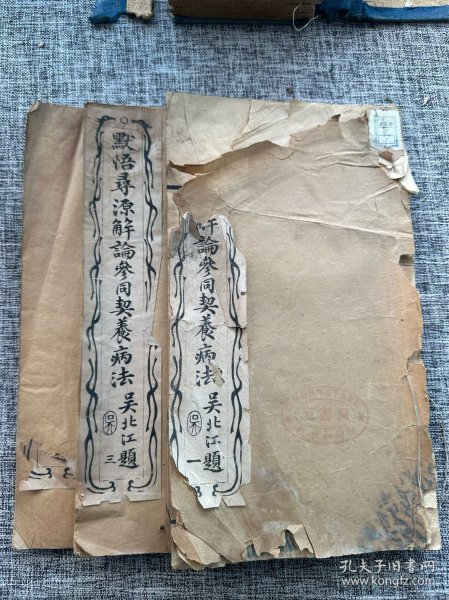 默悟尋源解論參同契養病法
吳北江題
三
論參同契養病法
吳北江題
一
孔夫子旧书网
www.kongfz.com